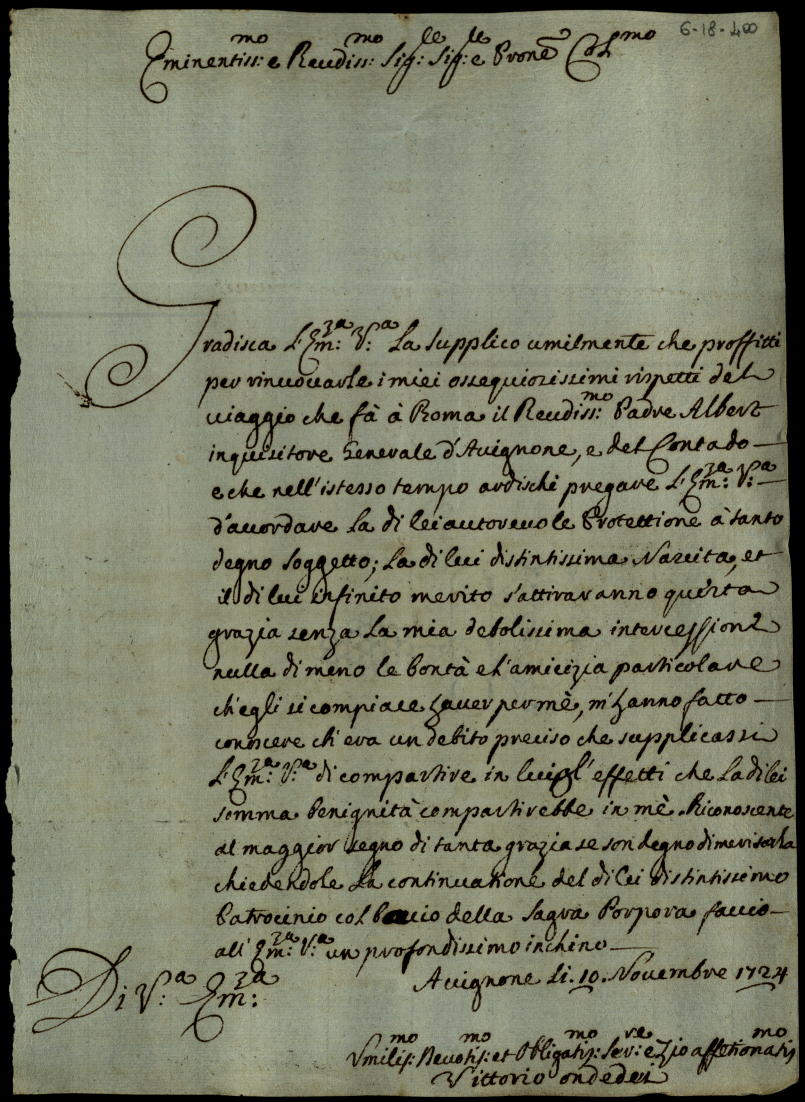 6-18-400
Eminentiss:mo e Reudiss:mo Sig:le Sig:le e Prone Col:mo
Gradisca L'Em:za V:a La supplico umilmente che proffitti
per rinuouarle i miei ossequiosissimi rispetti del
uiaggio che fà à Roma il Reudiss:mo Padre Albert
inquisitore Generale d'Auignone, e del Contado
e che nell'istesso tempo ardischi pregare L'Em:za V:a
d'accordare La di lei autoreuole Protettione à tanto
degno soggetto; La di lui distintissima Nascita, et
il di lui infinito merito s'attiraranno questa
grazia senza La mia debolissima intercessione
nulla di meno le bontà e l'amicizia particolare
ch'egli si compiace hauer per mè, m'hanno fatto
conoscere ch'era un debito preciso che supplicassi
L'Em:za V:a di compartire in lui gl'effetti che La di lei
somma benignità compartirebbe in mè. Riconoscente
al maggior segno di tanta grazia se son degno di meritarla
chiedendole La continuatione del di lei distintissimo
Patrocinio col bacio della Sagra Porpora faccio
all'Em:za V:a un profondissimo inchino
Di V:a Em:za
Auignone Li. 10. Nouembre 1724
Vmiliss:mo Deuotis:mo et Obligatis:mo Ser:re e Zio affetionatis:mo
Vittorio ondedei